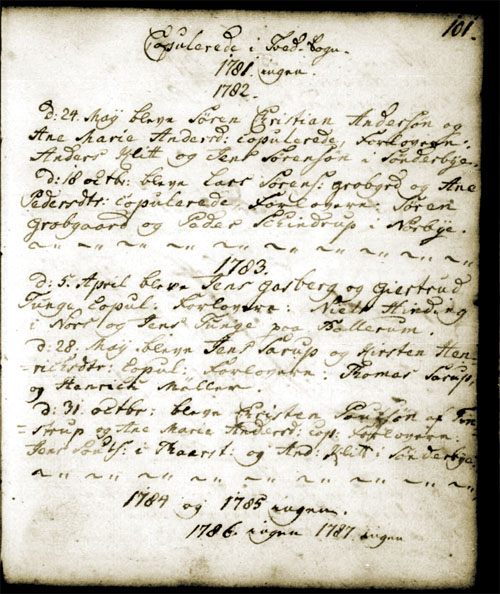 101.
Copulerede i Tved-Sogn.
1781 ingen.
1782.
D: 24. Maÿ blevn Søren Christian Andersøn og
Ane Marie Andersd: copulerede, Forlovern:
Anders Klitt og Jens Sørensøn i Sønderbye.
D: 18 octbr: blevn Lars Sørens: grobgrd og Ane
Pedersdtr: copulerede, Forlovern: Søren
Grobgaard og Peder Schindrup i Nørbÿe.
1783.
D: 5. April blevn Jens Gasberg og Giertrud
Tunge Copul: Forlovern: Niels Hinding
i Nors og Jens Tunge paa Ballerum.
D: 28. Maÿ blevn Jens Sarup og Kirsten Hen-
-richsdtr: Copul: Forlovern: Thomas Sarup,
og Henrich Møller.
D: 31. octbr: blevn Christen Poulsøn af
=strup og Ane Marie Andersd: Cop: Forlovern:
Jens i og And: Klitt i Sønderbye
1784 og 1785 ingen.
1786. ingen 1787. ingen